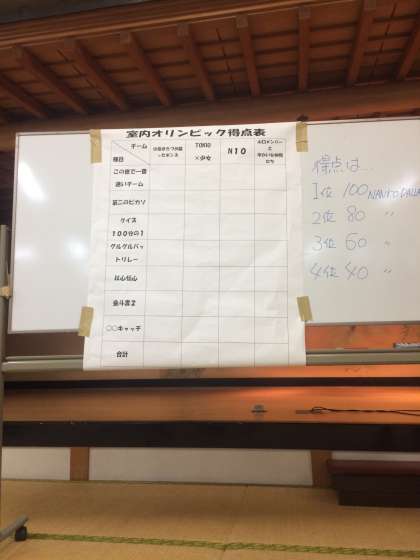 室内オリンピック得点表
チーム
種目
TOKIO
×少女
N10
この世で一番
速いチーム
第二のピカソ
クイズ
100分の1
グルグルバッ
トリレー
以心伝心
金斗雲2
○○キャッチ
合計
得点は…
1位 100
2位 80 〃
3位 60 〃
4位 40 〃